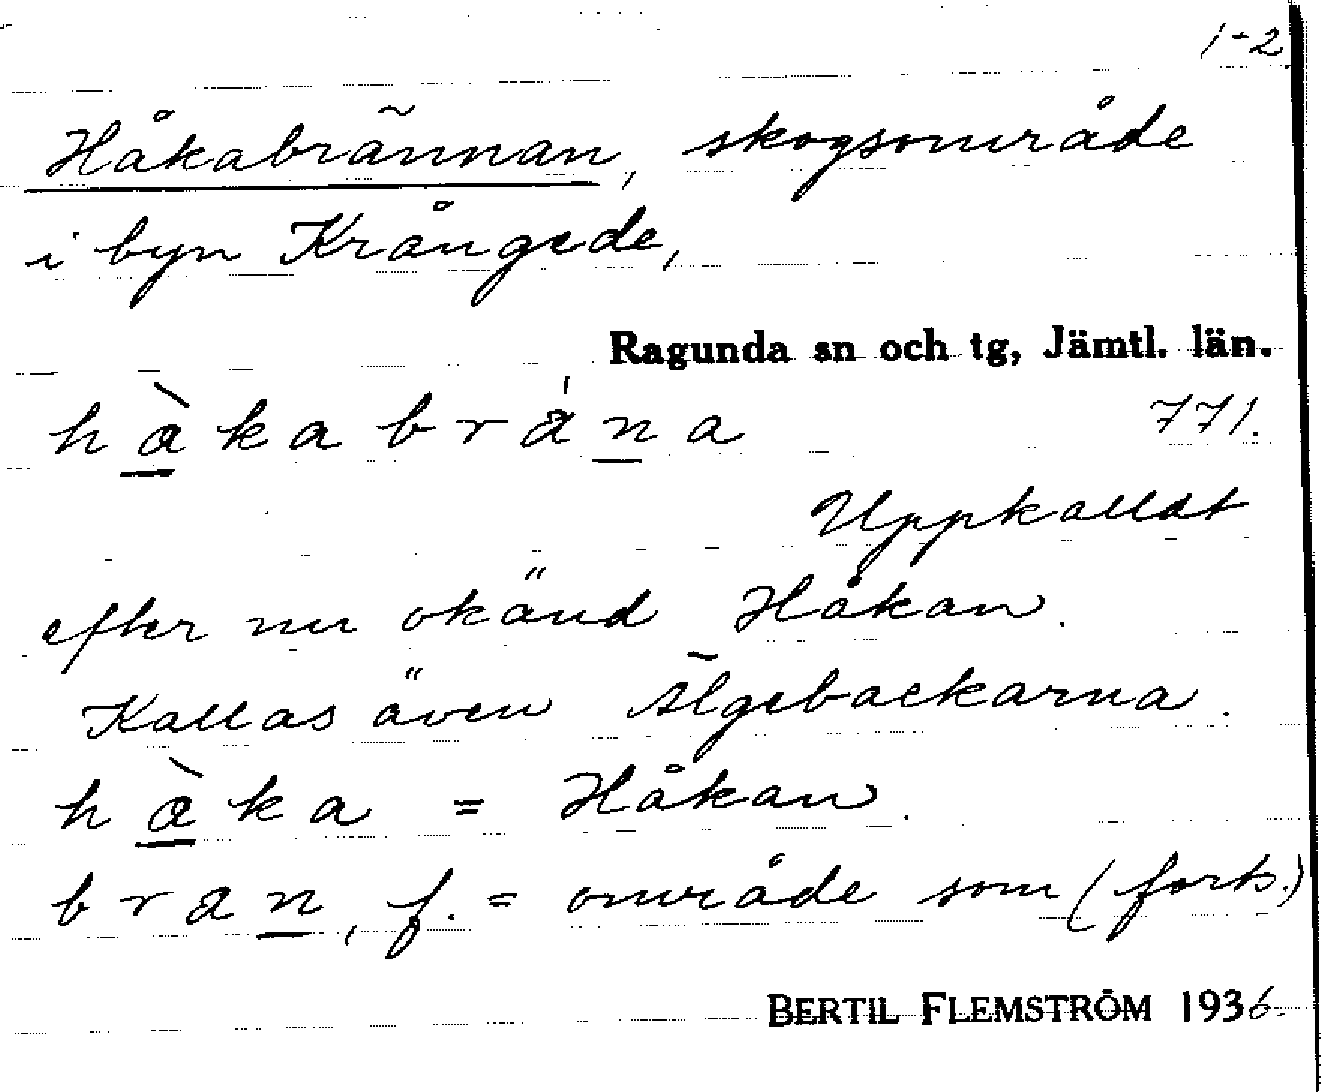 1-2
Håkabrännan, skogsområde
i byn Krångede,
Ragunda sn och tg, Jämtl. län.
hàkabrána 771.
Uppkallat
efter nu okänd Håkan.
Kallas även Älgebackarna.
hàka = Håkan.
bran, f. = område som (forts.)
BERTIL FLEMSTRÖM 1936